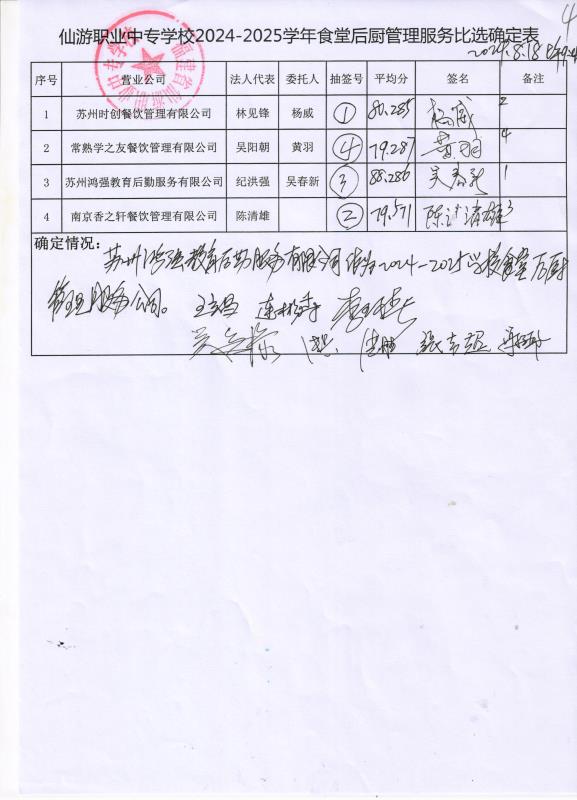 4
仙游职业中专学校2024-2025学年食堂后厨管理服务比选确定表
2024.8.18
序号 营业公司 法人代表 委托人 抽签号 平均分 签名 备注
1 苏州时创餐饮管理有限公司 林见锋 杨威 ① 80.285 杨威 2
2 常熟学之友餐饮管理有限公司 吴阳朝 黄羽 ④ 79.287 黄羽 4
3 苏州鸿强教育后勤服务有限公司 纪洪强 吴春新 ③ 88.286 吴春新 1
4 南京香之轩餐饮管理有限公司 陈清雄 ② 79.571 陈清雄 3
确定情况：
苏州鸿强教育后勤服务有限公司 2024-2025学校食堂后厨
管理服务公司。